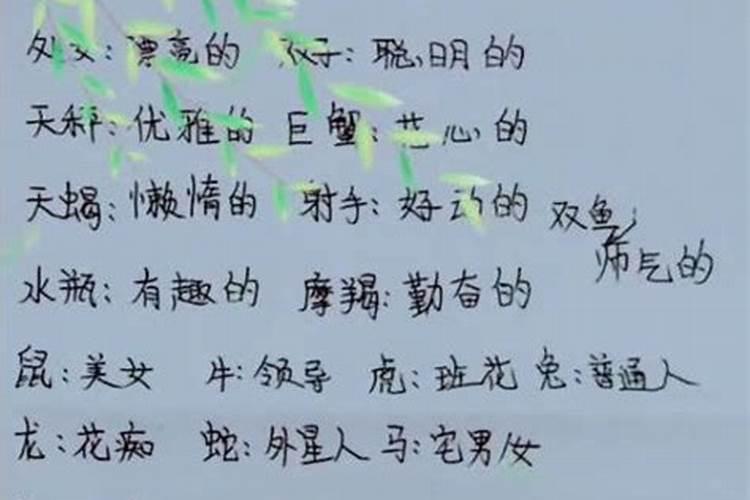 处女：漂亮的 双子：聪明的
天秤：优雅的 巨蟹：花心的
天蝎：懒惰的 射手：好动的 双鱼：
帅气的
水瓶：有趣的 摩羯：勤奋的
鼠：美女 牛：领导 虎：班花 兔：普通人
龙：花痴 蛇：外星人 马：宅男/女